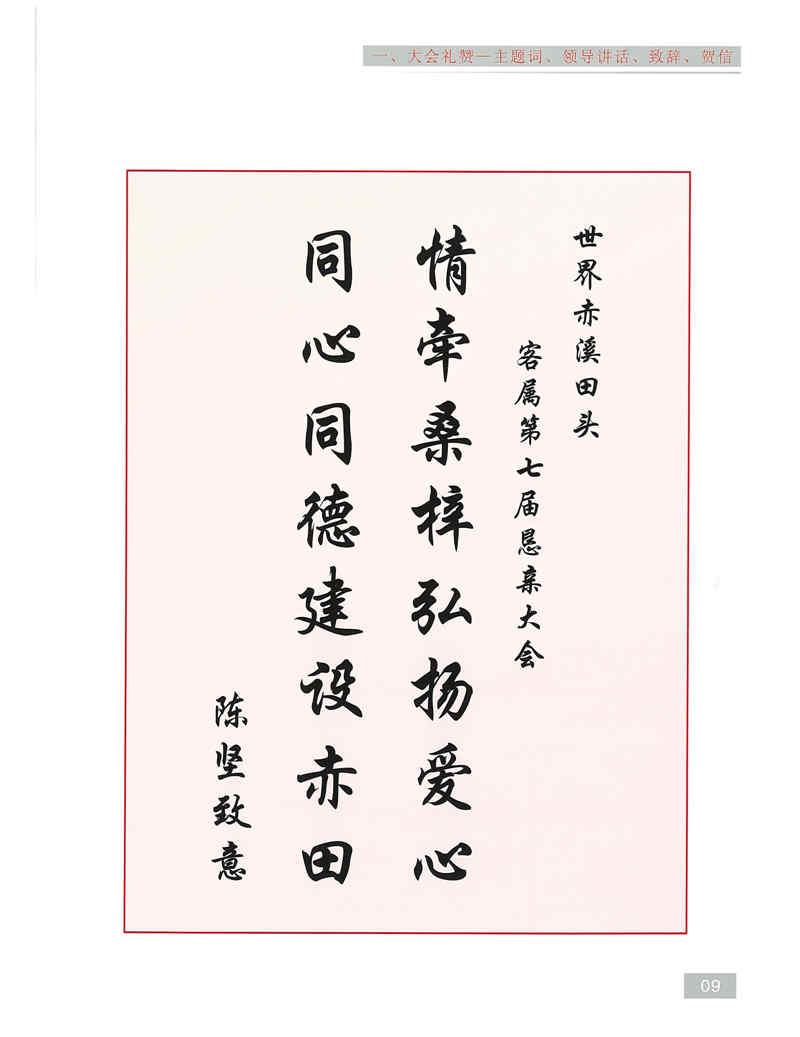 一、大会礼赞—主题词、领导讲话、致辞、贺信
世界赤溪田头
客属第七届恳亲大会
情牵桑梓弘扬爱心
同心同德建设赤田
陈坚致意
09